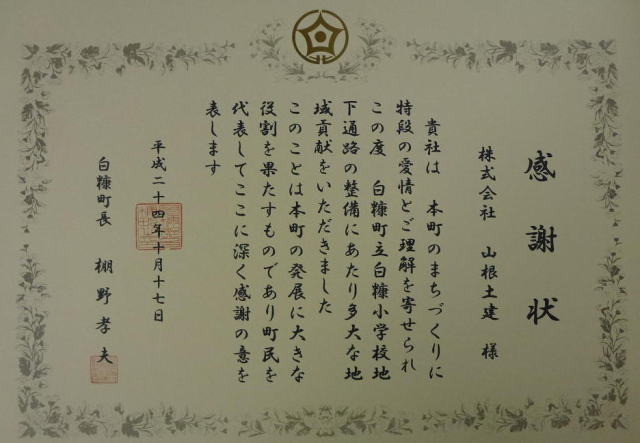 感謝状
株式会社 山根土建 様
貴社は 本町のまちづくりに
特段の愛情とご理解を寄せられ
この度 白糠町立白糠小学校地
下通路の整備にあたり多大な地
域貢献をいただきました
このことは本町の発展に大きな
役割を果たすものであり町民を
代表してここに深く感謝の意を
表します
平成二十四年十月十七日
白糠町長 棚野孝夫